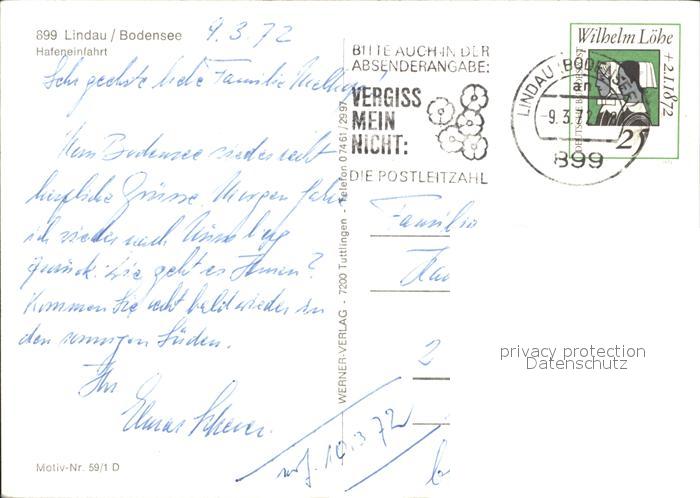 899 Lindau / Bodensee
Hafeneinfahrt
9.3.72
Sehr geehrte liebe Familie
Vom Bodensee wieder recht
herzliche Grüsse. Morgen fahre
ich wieder nach Nürnberg
zurück. Wie geht es Ihnen?
Kommen Sie recht bald wieder in
den sonnigen Süden.
Ihr
Motiv-Nr. 59/1 D
WERNER-VERLAG - 7200 Tuttlingen - Telefon 07461 / 2997
BITTE AUCH IN DER
ABSENDERANGABE:
VERGISS
MEIN
NICHT:
DIE POSTLEITZAHL
LINDAU (BODENSEE)
an
-9.3.72
899
Wilhelm Löhe
+2.1.1872
DEUTSCHE BUNDESPOST
25
Familie
2
14.3.72
privacy protection
Datenschutz